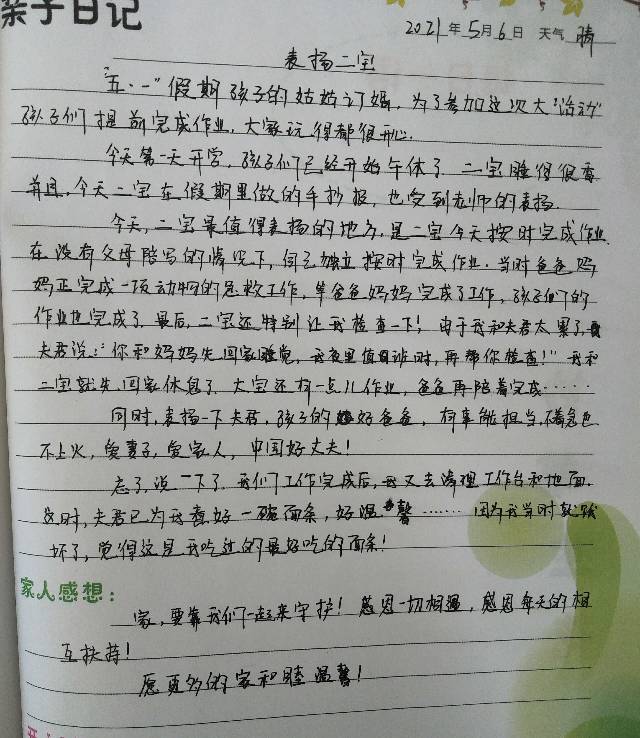 亲子日记
2021年5月6日 天气 晴
表扬二宝
"五·一"假期孩子的姑姑订婚,为了参加这次大"活动"
孩子们提前完成作业,大家玩得都很开心.
今天第一天开营,孩子们已经开始午休了.二宝睡得很香
并且,今天二宝在假期里做的手抄报,也受到老师的表扬.
今天,二宝最值得表扬的地方,是二宝今天按时完成作业.
在没有父母陪写的情况下,自己独立按时完成作业.当时爸爸妈
妈正完成一项动物的急救工作,等爸爸妈妈完成了工作,孩子们的
作业也完成了.最后,二宝还特别让我检查一下!由于我和夫君太累了,
夫君说:"你和妈妈先回家睡觉,我夜里值班时,再帮你检查!"我和
二宝就先回家休息了.大宝还有一点儿作业,爸爸再陪着完成……
同时,表扬一下夫君,孩子的好爸爸,有事能担当,不着急也
不上火,爱妻子,爱家人,中国好丈夫!
忘了,说一下了.我们工作完成后,我又去清理工作台和地面.
这时,夫君已为我煮好一碗面条,好温馨……因为我当时就饿
坏了,觉得这是我吃过的最好吃的面条!
家人感想:
家,要靠我们一起来守护!感恩一切相遇,感恩每天的相
互扶持!
愿更多的家和睦温馨!